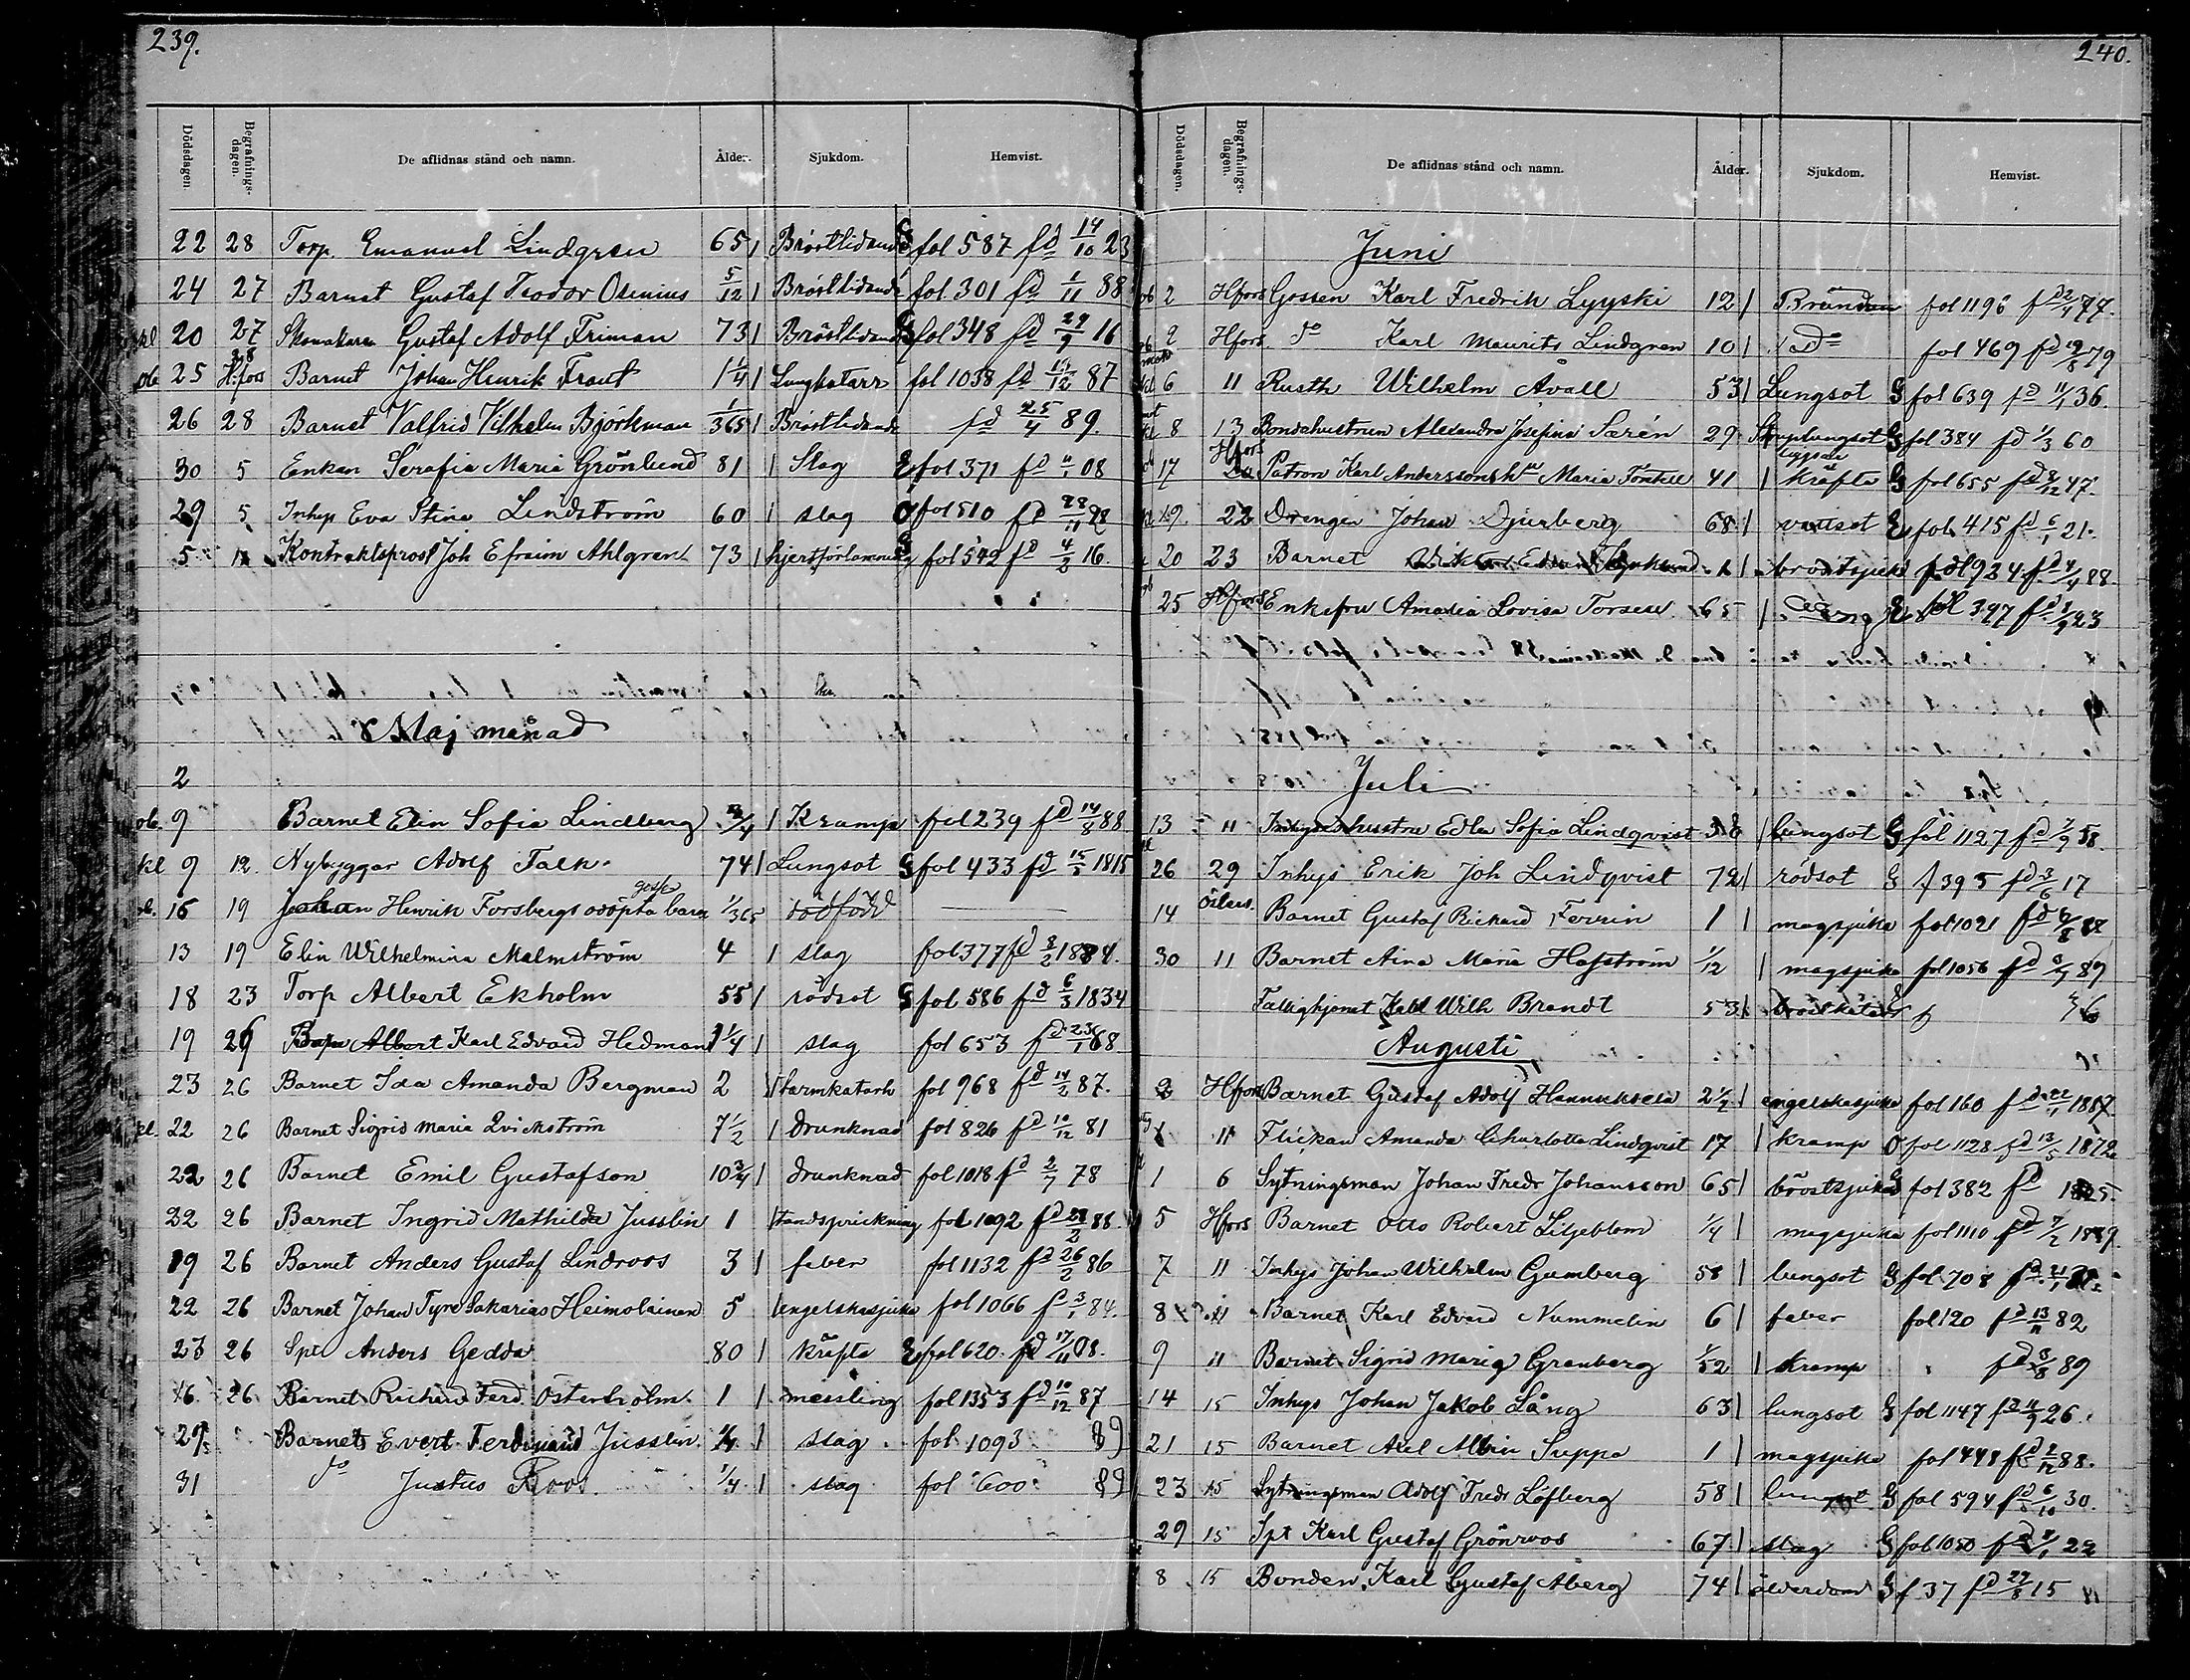 239.
Dödsdagen. Begrafnings-dagen. De aflidnas stånd och namn. Ålder. Sjukdom. Hemvist.
22 28 Torp. Emanuel Lindgren 65 Bröstlidande G fol 587 fd 14/10 23
24 27 Barnet Gustaf Teodor Osenius 5/12 Bröstlidande fol 301 fd 1/11 88
kl 20 27 Skomakare Gustaf Adolf Friman 73 Bröstlidande G fol 348 fd 29/9 16
ob 25 28 H:fors Barnet Johan Henrik Frant 1 1/4 Lungkatarr fol 1038 fd 12 87
26 28 Barnet Valfrid Vilhelm Björkman 1/365 Bröstlidande fd 25/4 89.
30 5 Enkan Serafia Maria Grönlund 81 Slag E fol 371 fd 11/1 08
29 5 Inhys Eva Stina Lindström 60 slag O fol 510 fd 28/11 28
5 Kontraktsprost Joh Efraim Ahlgren 73 hjertförlamning fol 542 fd 4/2 16.
Maj månad
2
ob. 9 Barnet Elin Sofia Lindberg 3/4 Kramp fol 239 fd 14/8 88
kl 9 12. Nybyggar Adolf Falk 74 Lungsot G fol 433 fd 15/5 1815
ob. 16 19 Johan Henrik Forsbergs odöpta gosse barn 1/365 dödfödd
13 19 Elin Wilhelmina Malmström 4 slag fol 377 fd 8/2 1884.
18 23 Torp Albert Ekholm 55 rödsot G fol 586 fd 6/3 1834
19 26 Albert Karl Edvard Hedman 1 1/4 slag fol 653 fd 23/1 88
23 26 Barnet Ida Amanda Bergman 2 tarmkatarh fol 968 fd 14/2 87.
kl. 22 26 Barnet Sigrid Maria Qvickström 7 1/2 drunknad fol 826 fd 10/12 81
22 26 Barnet Emil Gustafson 10 3/4 drunknad fol 1018 fd 2/7 78
22 26 Barnet Ingrid Mathilda Jusslin 1 tandsprickning fol 1092 fd 28/2 88
19 26 Barnet Anders Gustaf Lindroos 3 feber fol 1132 fd 26/2 86
22 26 Barnet Johan Tyre Sakarias Heimolainen 5 engelskasjuka fol 1066 fd 3/1 84.
23 26 Spt Anders Gedda 80 kräfta E fol 620 fd 17/11 08.
16. 26 Barnet Richard Ferd. Österholm 1 messling fol 1353 fd 10/12 87
29 Barnet Evert Ferdinand Jusslin 1/4 slag fol 1093 89
31 do Justus Roos 1/4 slag fol 600 89
240.
Dödsdagen. Begrafnings-dagen. De aflidnas stånd och namn. Ålder. Sjukdom. Hemvist.
Juni
ob 2 Hfors Gossen Karl Fredrik Lyyski 12 Brändan fol 1196 fd 77.
ob 2 Hfors do Karl Maurits Lindgren 10 do fol 469 fd 19/8 79
6 11 Rusth Wilhelm Avall 53 Lungsot G fol 639 fd 11/1 36.
8 13 Bondehustrun Alexandra Josefina Sarén 29 Struplungsot G fol 384 fd 1/3 60
17 Hfors Patron Karl Anderssons hu Maria Fontell 41 kräfta G fol 655 fd 8/12 47.
19. 22 Drengen Johan Djurberg 68 vattsot E fol. 415 fd 6/1 21.
20 23 Barnet 1 bröstsjuka fol 924 fd 4/4 88.
25 Hfors Enkefru Amalia Lovisa Forsell 65 E fol 397 fd 8/9 23
Juli
13 11 Inhyseshustru Edla Sofia Lindqvist lungsot G fol 1127 fd 7/9 58.
26 29 Inhys Erik Joh Lindqvist 72 rödsot G f 395 fd 3/6 17
14 Österl. Barnet Gustaf Rickard Ferrin 1 magsjuka fol 1021 fd 8 88
30 11 Barnet Aina Maria Hafström 1/12 magsjuka fol 1056 fd 89
Fattighjonet Karl Wilh Brandt 53 bröstkatarr 36
Augusti
2 Hfors Barnet Gustaf Adolf Hannuksela 2 1/2 engelskasjuka fol 160 fd 22/1 1887.
11 Flickan Amanda Charlotta Lindqvist 17 kramp O fol 1128 fd 13/5 1872
1 6 Sytningsman Johan Fredr Johansson 65 bröstsjuka G fol 382 fd 1825.
5 Hfors Barnet Otto Robert Liljeblom 1/4 magsjuka fol 1110 fd 7/2 1889.
7 11 Inhys Johan Wilhelm Gumberg 58 lungsot G fol 708 fd 21/1
8 11 Barnet Karl Edvard Nummelin 6 feber fol 120 fd 13/11 82
9 11 Barnet Sigrid Maria Granberg 1/52 kramp fd 3/8 89
14 15 Inhys Johan Jakob Lång 63 lungsot G fol 1147 fd 11/7 26.
21 15 Barnet Axel Albin Suppa 1 magsjuka fol 448 fd 2/12 88.
23 15 Sytningsman Adolf Fredr Löfberg 58 lungsot G fol 594 fd 6/10 30.
29 15 Spt Karl Gustaf Grönroos 67 slag G fol 1050 fd 8/1 22
8 15 Bonden Karl Gustaf Åberg 74 ålderdom G f 37 fd 27/8 15